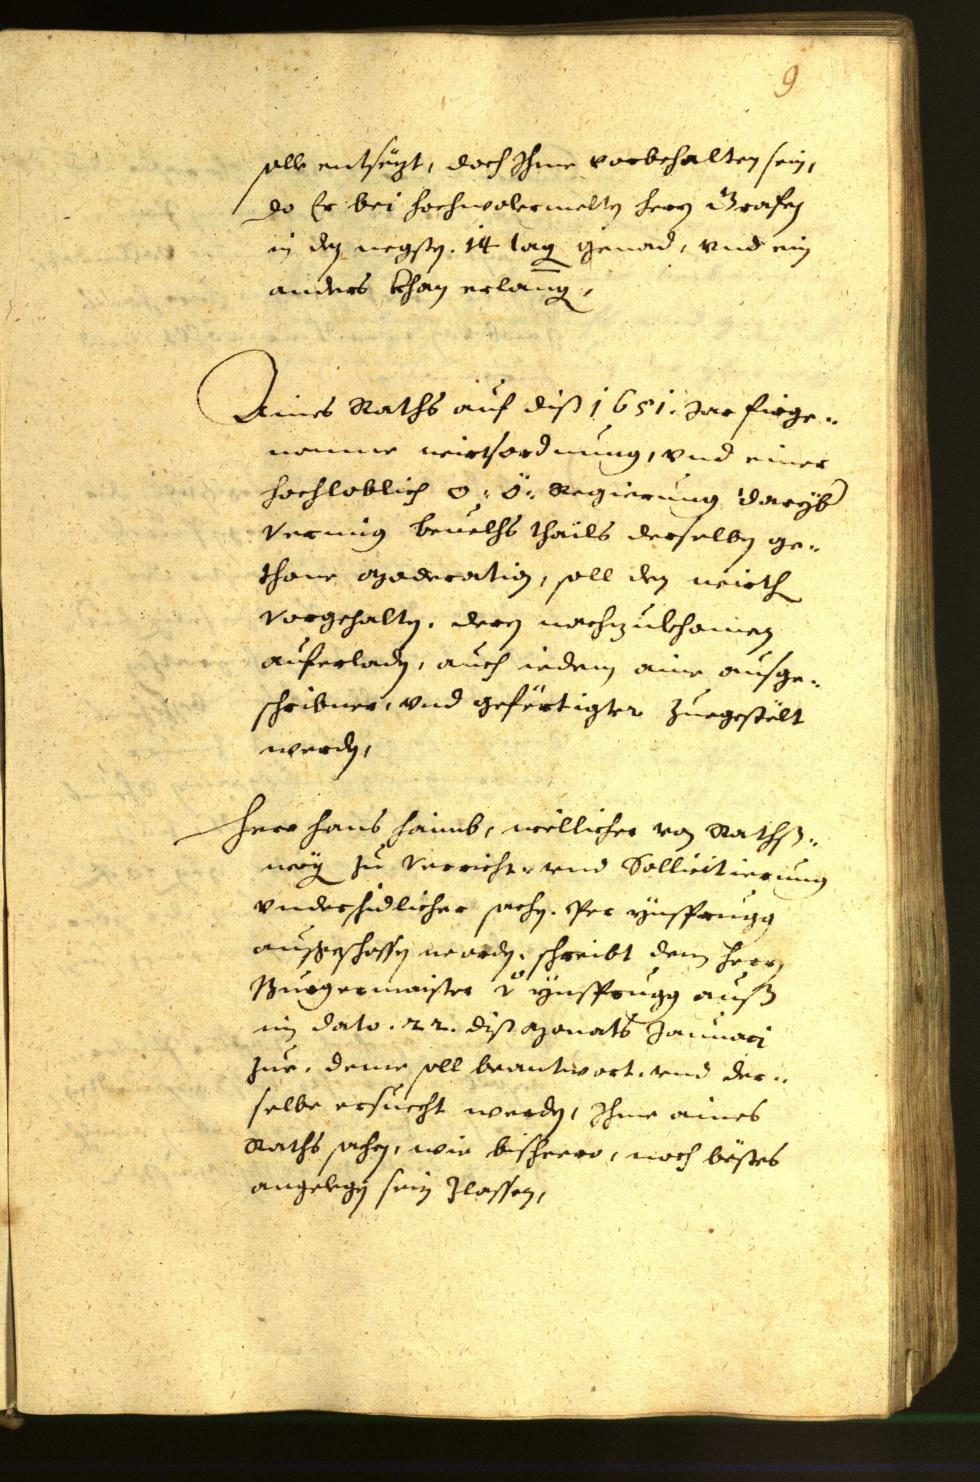 9
solle entsezt, doch Ihme vorbehalten sein,
do Er bei hochwolermelten herrn Grafen
in den negsten .14 tag genad, vnd ein
anders khan erlangen,
Aines Raths auf diß 1651. Jar fürge¬
nomne wirtsordnung, vnd einer
hochloblich O: Ö: Regierung darüber
vermüg beuelhs thails derselben ge¬
thone Moderation, soll den wirth
vorgehalten, deren nachzukhomen
auferladen, auch iedem aine ausge¬
schribner, vnd gefertigter zuegestelt
werden,
Herr Hans Haimb, wellicher von Raths¬
weg zu verricht- vnd Sollicitierung
vnderschidlicher sachen. Per Ynsprugg
außgeschossen worden, schreibt dem herrn
Burgermaister v Ynsprugg auß
im dato .22. diß Monats Januari
zue, deme soll beantwort, vnd der¬
selbe ersuecht werden, Ihme aines
Raths sachen, wie bißhero, noch bestes
angelegen sein zlassen,